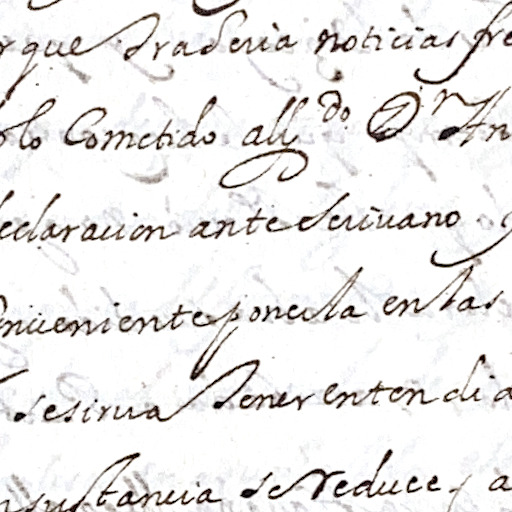 que traderia noticias fre
lo Cometido all do Dn An
declaracion ante scriuano
nueniente ponerla en las
se sirua tener entendi
sustancia se reduce a